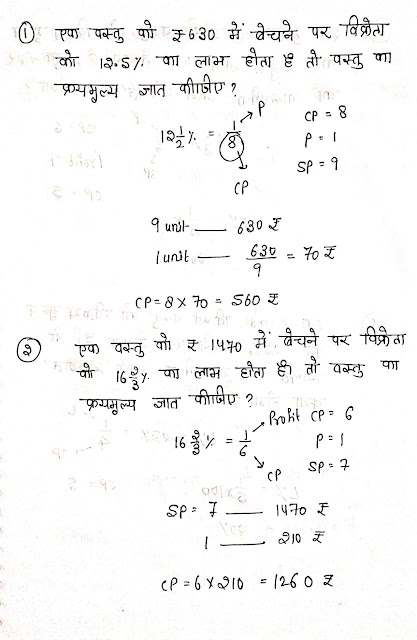 ① एक वस्तु को ₹630 में बेचने पर विक्रेता
को 12.5% का लाभ होता है तो वस्तु का
क्रयमूल्य ज्ञात कीजिए?
12½% = 1/8
P
CP
CP = 8
P = 1
SP = 9
9 unit — 630 ₹
1 unit — 630/9 = 70 ₹
CP = 8 × 70 = 560 ₹
② एक वस्तु को ₹ 1470 में बेचने पर विक्रेता
को 16⅔% का लाभ होता है। तो वस्तु का
क्रयमूल्य ज्ञात कीजिए?
16⅔% = 1/6
Profit
CP
CP = 6
P = 1
SP = 7
SP = 7 — 1470 ₹
1 — 210 ₹
CP = 6 × 210 = 1260 ₹